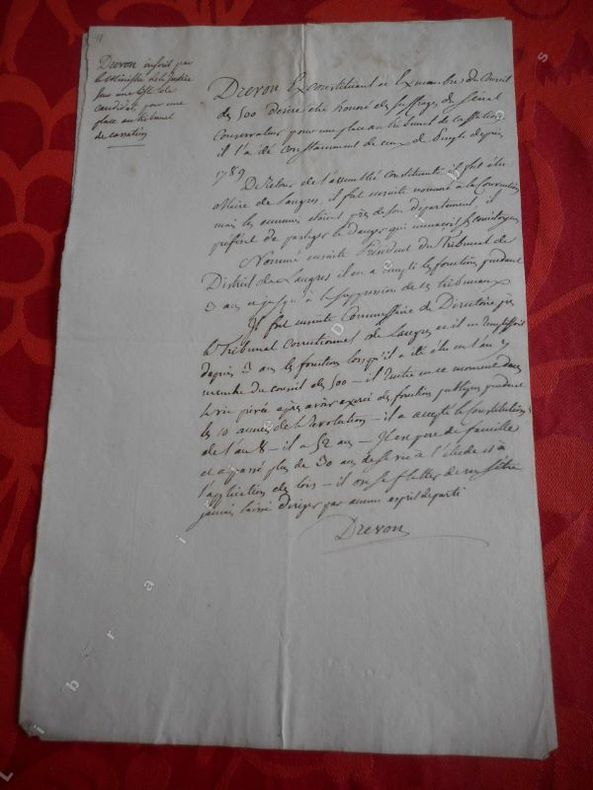 Drevon inscrit par
le Ministre de la Justice
sur une liste de
candidats pour une
place au tribunal
de cassation
Drevon Exconstituant et Ex membre du Conseil
des 500 désire être honoré des suffrages du Sénat
Conservateur pour une place au tribunal de cassation,
il l'a été constamment de ceux du peuple depuis
1789
De Retour de l'assemblée constituante il fut élu
Maire de Langres, il fut ensuite nommé à la Convention
mais les ennemis étaient près de son département, il
préféra de partager le danger qui menaçait ses concitoyens
Nommé ensuite Président du Tribunal du
District de Langres il en a rempli les fonctions pendant
3 ans et jusqu'à la suppression de ces tribunaux
Il fut ensuite Commissaire du Directoire près
le Tribunal Correctionnel de Langres et il en remplissait
depuis 3 ans les fonctions lorsqu'il a été élu en l'an 7
membre du conseil des 500 — il rentre en ce moment dans
la vie privée après avoir exercé des fonctions publiques pendant
les 10 années de la Révolution — il a accepté la Constitution
de l'an 8 — il a 52 ans — Il est père de famille
et a passé plus de 30 ans de sa vie à l'étude et à
l'application des lois — il ose se flatter de ne s'être
jamais laissé diriger par aucun esprit de parti
Drevon